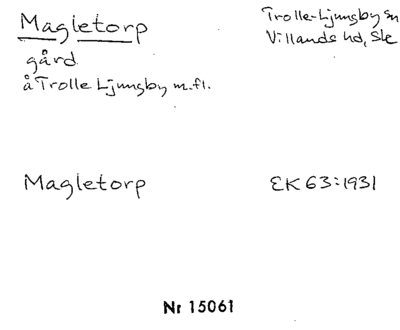 Magletorp
gård
å Trolle Ljungby m.fl.
Trolle-Ljungby sn
Villands hd, Sk
Magletorp
EK 63:1931
Nr 15061